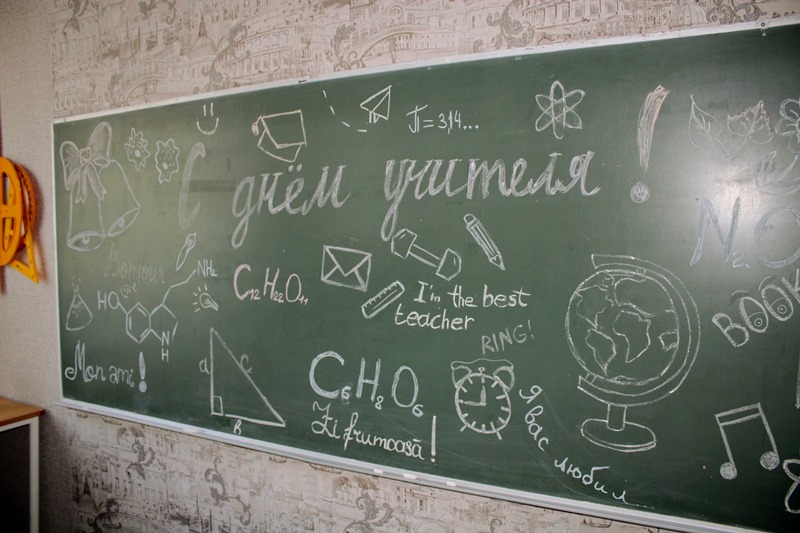 П = 3,14...
С днём учителя !
N₂O
Bonjour
NH₂
HO
N
H
C₁₂H₂₂O₁₁
I'm the best
teacher
BOOK
RING!
Mon ami !
a
c
в
C₆H₈O₆
Zi frumoasă !
Я вас любил...